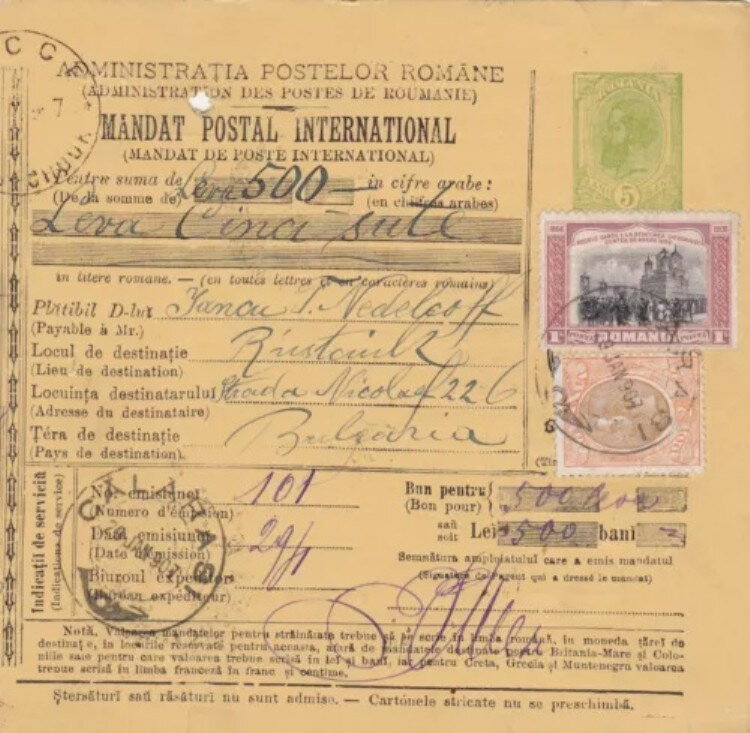 ADMINISTRAȚIA POSTELOR ROMÂNE
(ADMINISTRATION DES POSTES DE ROUMANIE)
MANDAT POSTAL INTERNATIONAL
(MANDAT DE POSTE INTERNATIONAL)
Pentru suma de Leva 500 — in cifre arabe:
(De la somme de) (en chiffres arabes)
Leva Cinci sute
in litere romane. — (en toutes lettres et en caractères romains)
Plătibil D-lui Iancu T. Nedelcoff
(Payable à Mr.)
Locul de destinație Rustciuk
(Lieu de destination)
Locuința destinatarului Strada Nicolae 226
(Adresse du destinataire)
Țéra de destinație Bulgaria
(Pays de destination)
5
1866 1906
1 POSTA ROMANIA 1
CALARASI
29 IAN 907
Indicații de serviciă
(Indications de service)
No. emisiunei 101
(Numero d'émission)
Data emisiunei 29/1
(Date d'émission)
Biuroul expeditor
(Bureau expéditeur)
Bun pentru 500 leva
(Bon pour)
saŭ
soit Lei 500 bani
Semnătura amploiatului care a emis mandatul
(Signature de l'agent qui a dressé le mandat)
CALARASI
29 IAN 907
Notă, Valoarea mandatelor pentru străinătate trebue să se scrie în limba română, în moneda țărei de
destinație, în locurile reservate pentru aceasta, afară de mandatele destinate pentru Britania-Mare și Colo-
niile sale pentru care valoarea trebue scrisă in lei și bani, iar pentru Creta, Grecia și Muntenegru valoarea
trebue scrisă în limba franceză în franc și centime.
Ștersături saŭ răsături nu sunt admise. — Cartónele stricate nu se preschimbă.